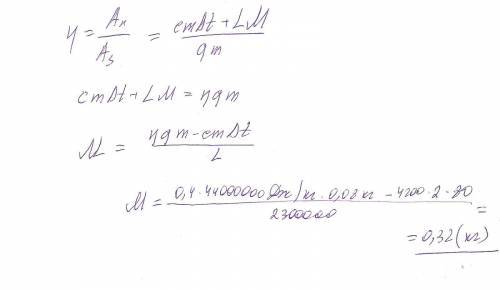 η = Aп / Aз = cmΔt + LM / qm
cmΔt + LM = ηqm
M = ηqm - cmΔt / L
M = 0,4 · 44000000 Дж/кг · 0,08 кг - 4200 · 2 · 80 / 2300000 =
= 0,32 (кг)